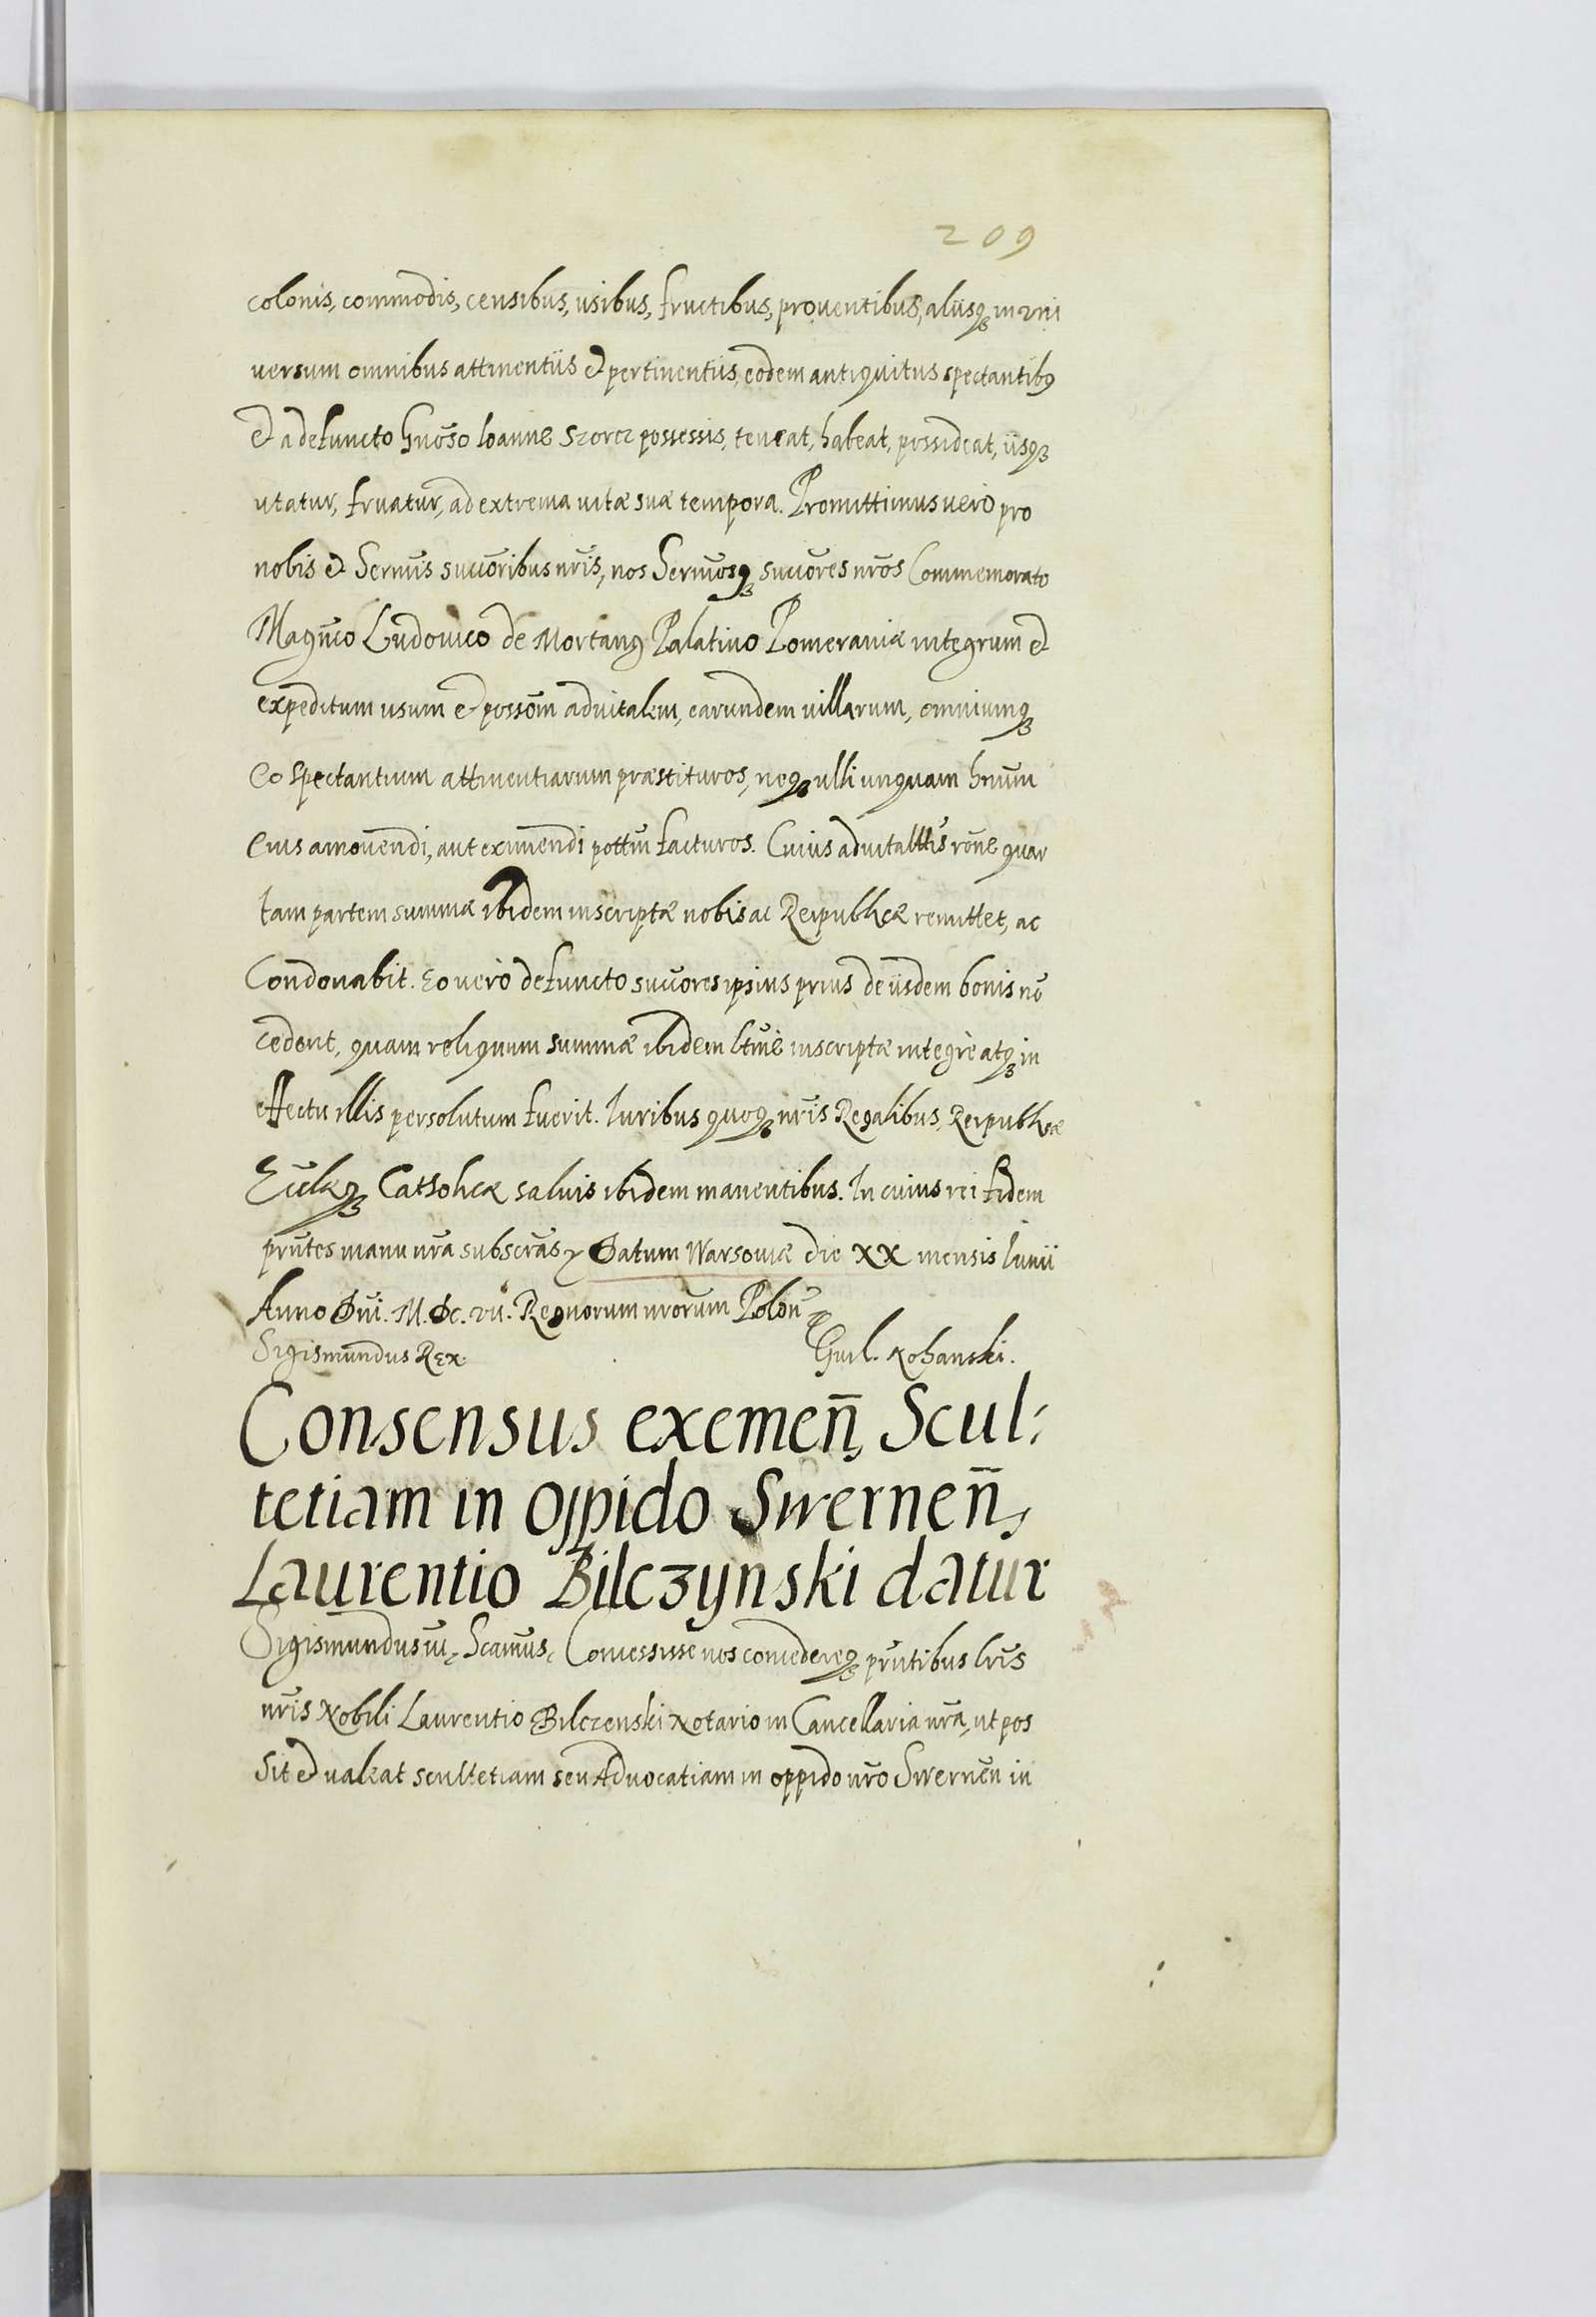 209
colonis, commodis, censibus, usibus, fructibus, proventibus, aliisq₃ in uni
versum omnibus attinentiis et pertinentiis, eodem antiquitus spectantibꝰ
et a defuncto Gnoso Ioanne Szorcz possessis, teneat, habeat, possideat, iisq₃
utatur, fruatur, ad extrema vitæ suæ tempora. Promittimus vero pro
nobis et Sermis succoribus nris, nos Sermosq₃ succores nros Commemorato
Magnco Ludovico de Mortang Palatino Pomeraniæ integrum et
expeditum usum et possom advitalem, earundem villarum, omniumq₃
eo spectantium attinentiarum præstituros, neq₃ ulli unquam hnum
eius amovendi, aut eximendi pottm facturos. Cuius advitalttis rone quar
tam partem summæ ibidem inscriptæ nobis ac Reipublicæ remittet, ac
Condonabit. Eo verò defuncto succores ipsius prius de iisdem bonis no
cedent, quam reliquum summæ ibidem ltme inscriptæ integrè atq₃ in
effectu illis persolutum fuerit. Iuribus quoq₃ nris Regalibus, Reipublicæ
Ecclæq₃ Catholicæ salvis ibidem manentibus. In cuius rei fidem
prntes manu nra subscras Datum Warsoviæ die XX mensis Iunii
Anno Dni. M. Dc. vii. Regnorum nrorum Polon
Sigismundus Rex. Guil. Kohanski.
Consensus exemen̄ Scul:
tetiam in oppido Swernen̄,
Laurentio Bilczynski datur
Sigismundus iii, Scamus, Concessisse nos concedereq₃ prntibus lris
nris Nobili Laurentio Bilczenski Notario in Cancellaria nra, ut pos
sit et valeat scultetiam seu Advocatiam in oppido nro Swernen in